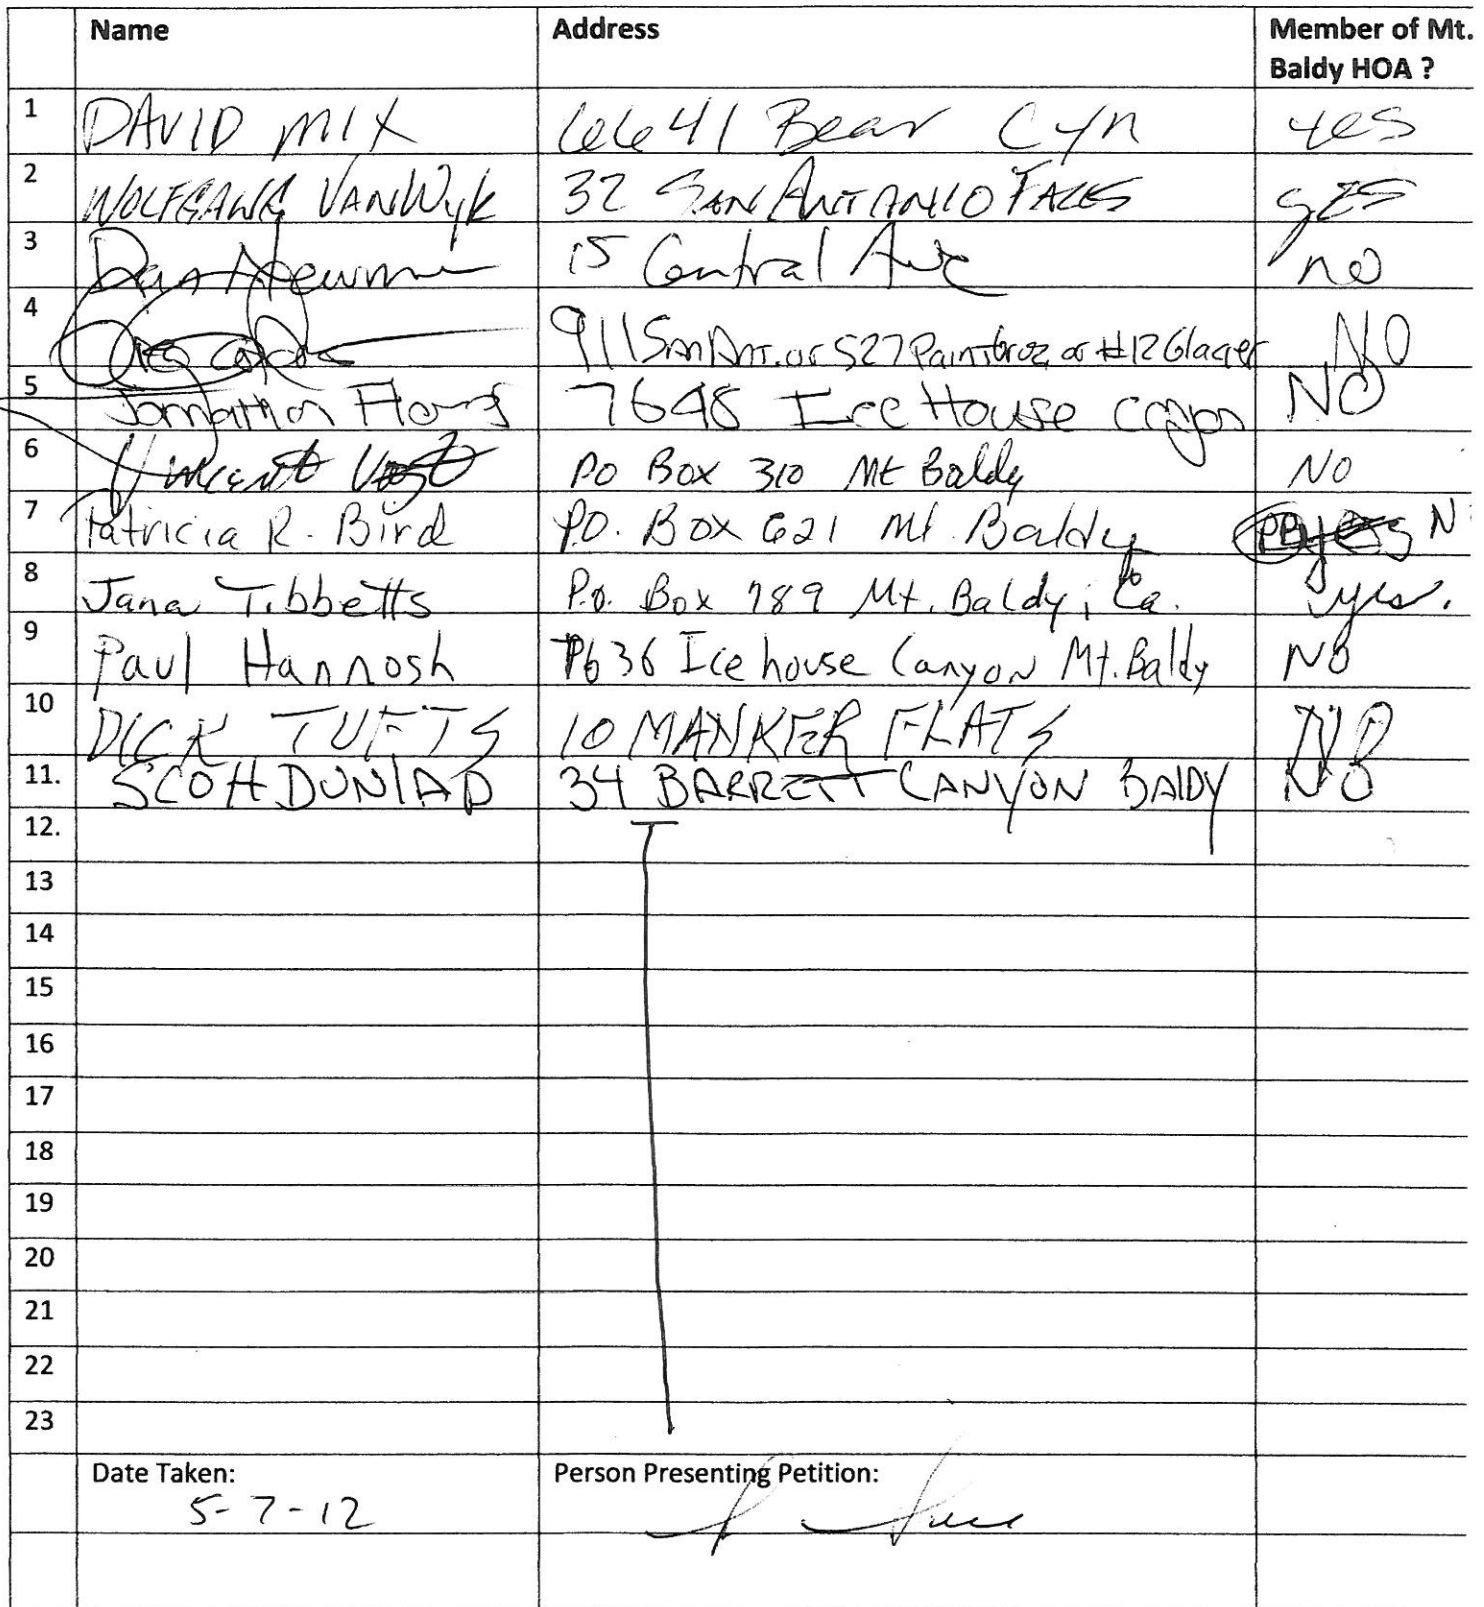 Name Address Member of Mt.
Baldy HOA ?
1 DAVID MIX 6641 Bear Cyn yes
2 WOLFGANG VANWyk 32 SAN ANTANIO FALLS yES
3 Dan Newm 15 Central Ave no
4 911 San Ant. or 527 Paintbroz or #12 Glacier NO
5 Jonathon Flores 7648 Ice House canyon NO
6 Vincent PO BOX 310 Mt Baldy NO
7 Patricia R. Bird P.O. Box 621 Mt. Baldy PB yes N
8 Jana Tibbetts P.O. Box 789 Mt. Baldy, Ca. yes.
9 Paul Hannosh 7636 Icehouse Canyon Mt. Baldy NO
10 DICK TUFTS 10 MANKER FLATS NO
11. SCOTT DUNLAP 34 BARRETT CANYON BALDY NO
12.
13
14
15
16
17
18
19
20
21
22
23
Date Taken: Person Presenting Petition:
5-7-12